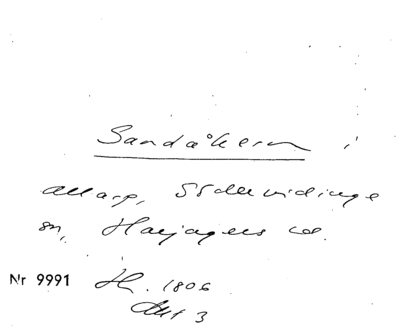 Sandåkern i
Allarp, Södervidinge
sn, Harjagers hd.
Nr 9991 H. 1806
Akt 3